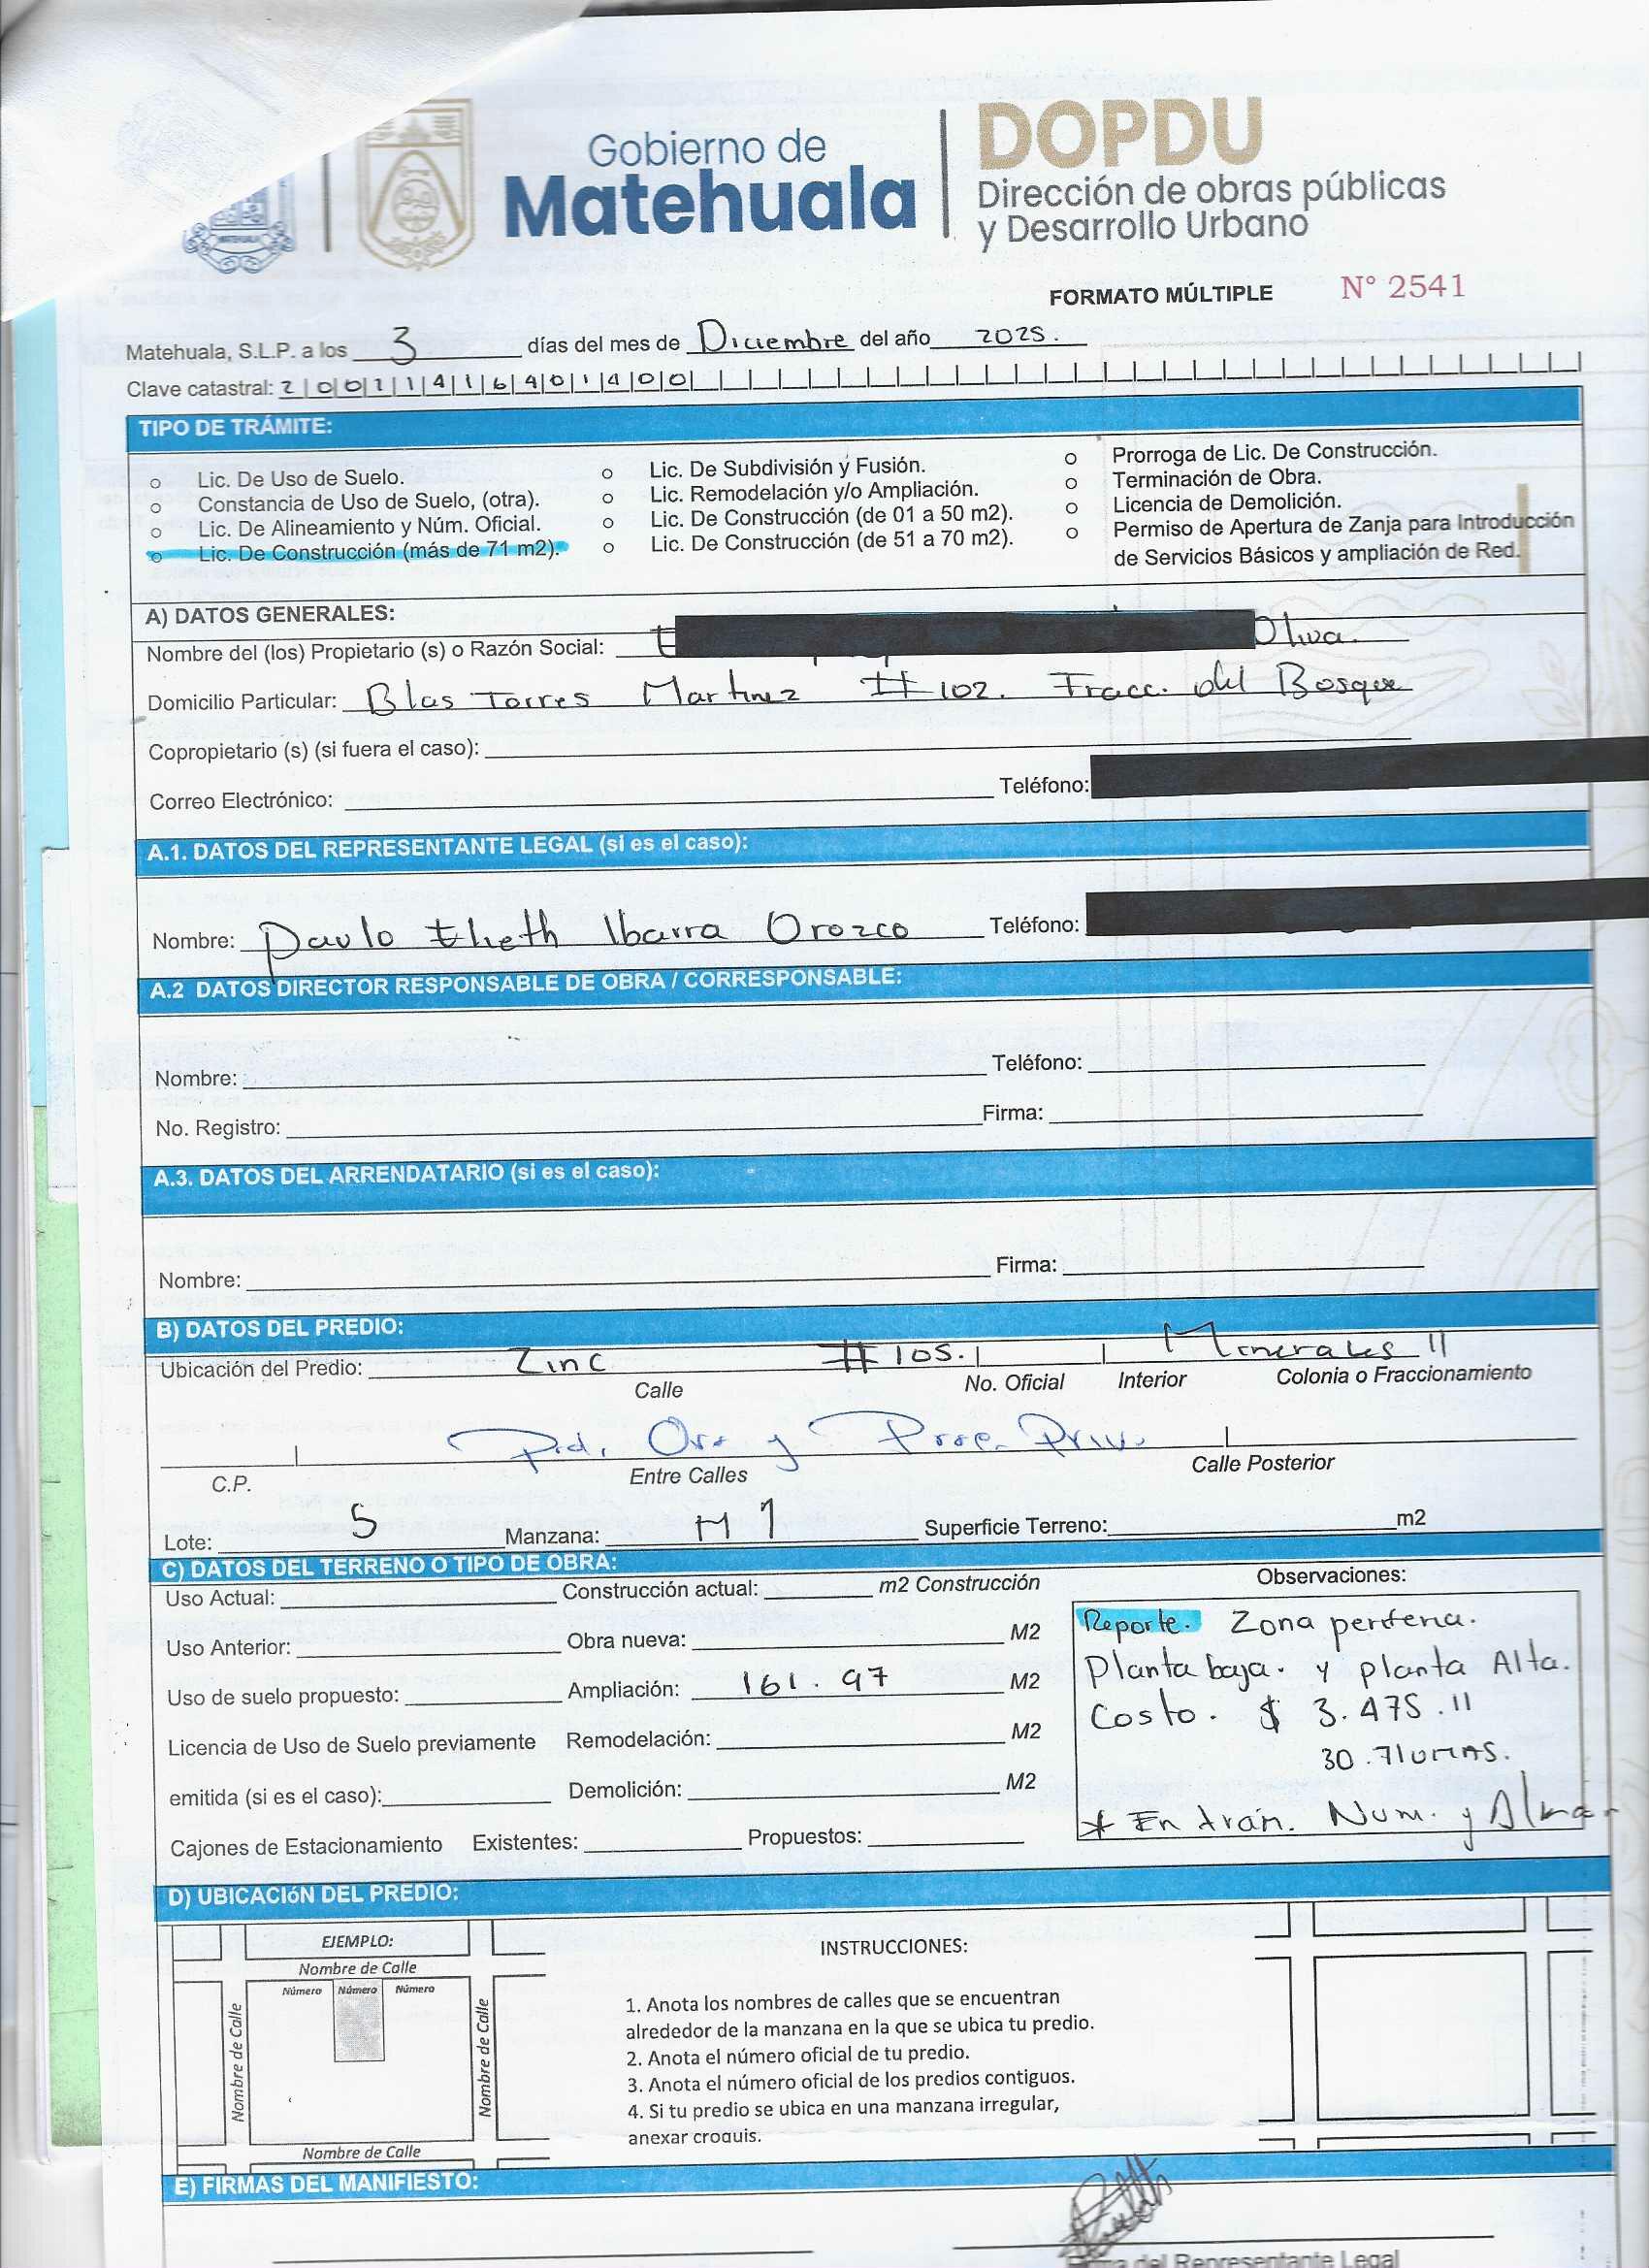 MATEHUALA
Gobierno de
Matehuala
DOPDU
Dirección de obras públicas
y Desarrollo Urbano
FORMATO MÚLTIPLE N° 2541
Matehuala, S.L.P. a los 3 días del mes de Diciembre del año 2025.
Clave catastral: 2|0|0|2|1|4|1|6|4|0|1|4|0|0|
TIPO DE TRÁMITE:
Lic. De Uso de Suelo.
Constancia de Uso de Suelo, (otra).
Lic. De Alineamiento y Núm. Oficial.
Lic. De Construcción (más de 71 m2).
Lic. De Subdivisión y Fusión.
Lic. Remodelación y/o Ampliación.
Lic. De Construcción (de 01 a 50 m2).
Lic. De Construcción (de 51 a 70 m2).
Prorroga de Lic. De Construcción.
Terminación de Obra.
Licencia de Demolición.
Permiso de Apertura de Zanja para Introducción
de Servicios Básicos y ampliación de Red.
A) DATOS GENERALES:
Nombre del (los) Propietario (s) o Razón Social: Oliva
Domicilio Particular: Blas Torres Martinez # 102. Fracc. del Bosque
Copropietario (s) (si fuera el caso):
Correo Electrónico: Teléfono:
A.1. DATOS DEL REPRESENTANTE LEGAL (si es el caso):
Nombre: Paulo Elieth Ibarra Orozco Teléfono:
A.2 DATOS DIRECTOR RESPONSABLE DE OBRA / CORRESPONSABLE:
Nombre: Teléfono:
No. Registro: Firma:
A.3. DATOS DEL ARRENDATARIO (si es el caso):
Nombre: Firma:
B) DATOS DEL PREDIO:
Ubicación del Predio: Zinc # 105. Minerales II
Calle No. Oficial Interior Colonia o Fraccionamiento
y Priv.
C.P. Entre Calles Calle Posterior
Lote: 5 Manzana: M 1 Superficie Terreno: m2
C) DATOS DEL TERRENO O TIPO DE OBRA:
Uso Actual: Construcción actual: m2 Construcción
Uso Anterior: Obra nueva: M2
Uso de suelo propuesto: Ampliación: 161.97 M2
Licencia de Uso de Suelo previamente Remodelación: M2
emitida (si es el caso): Demolición: M2
Cajones de Estacionamiento Existentes: Propuestos:
Observaciones:
Reporte. Zona
Planta baja. y planta Alta.
Costo. $ 3.475.11
30.71 UMAS.
* En trán. Num. y
D) UBICACIóN DEL PREDIO:
EJEMPLO:
Nombre de Calle
Número Número Número
Nombre de Calle
Nombre de Calle
Nombre de Calle
INSTRUCCIONES:
1. Anota los nombres de calles que se encuentran
alrededor de la manzana en la que se ubica tu predio.
2. Anota el número oficial de tu predio.
3. Anota el número oficial de los predios contiguos.
4. Si tu predio se ubica en una manzana irregular,
anexar croquis.
E) FIRMAS DEL MANIFIESTO:
del Representante Legal